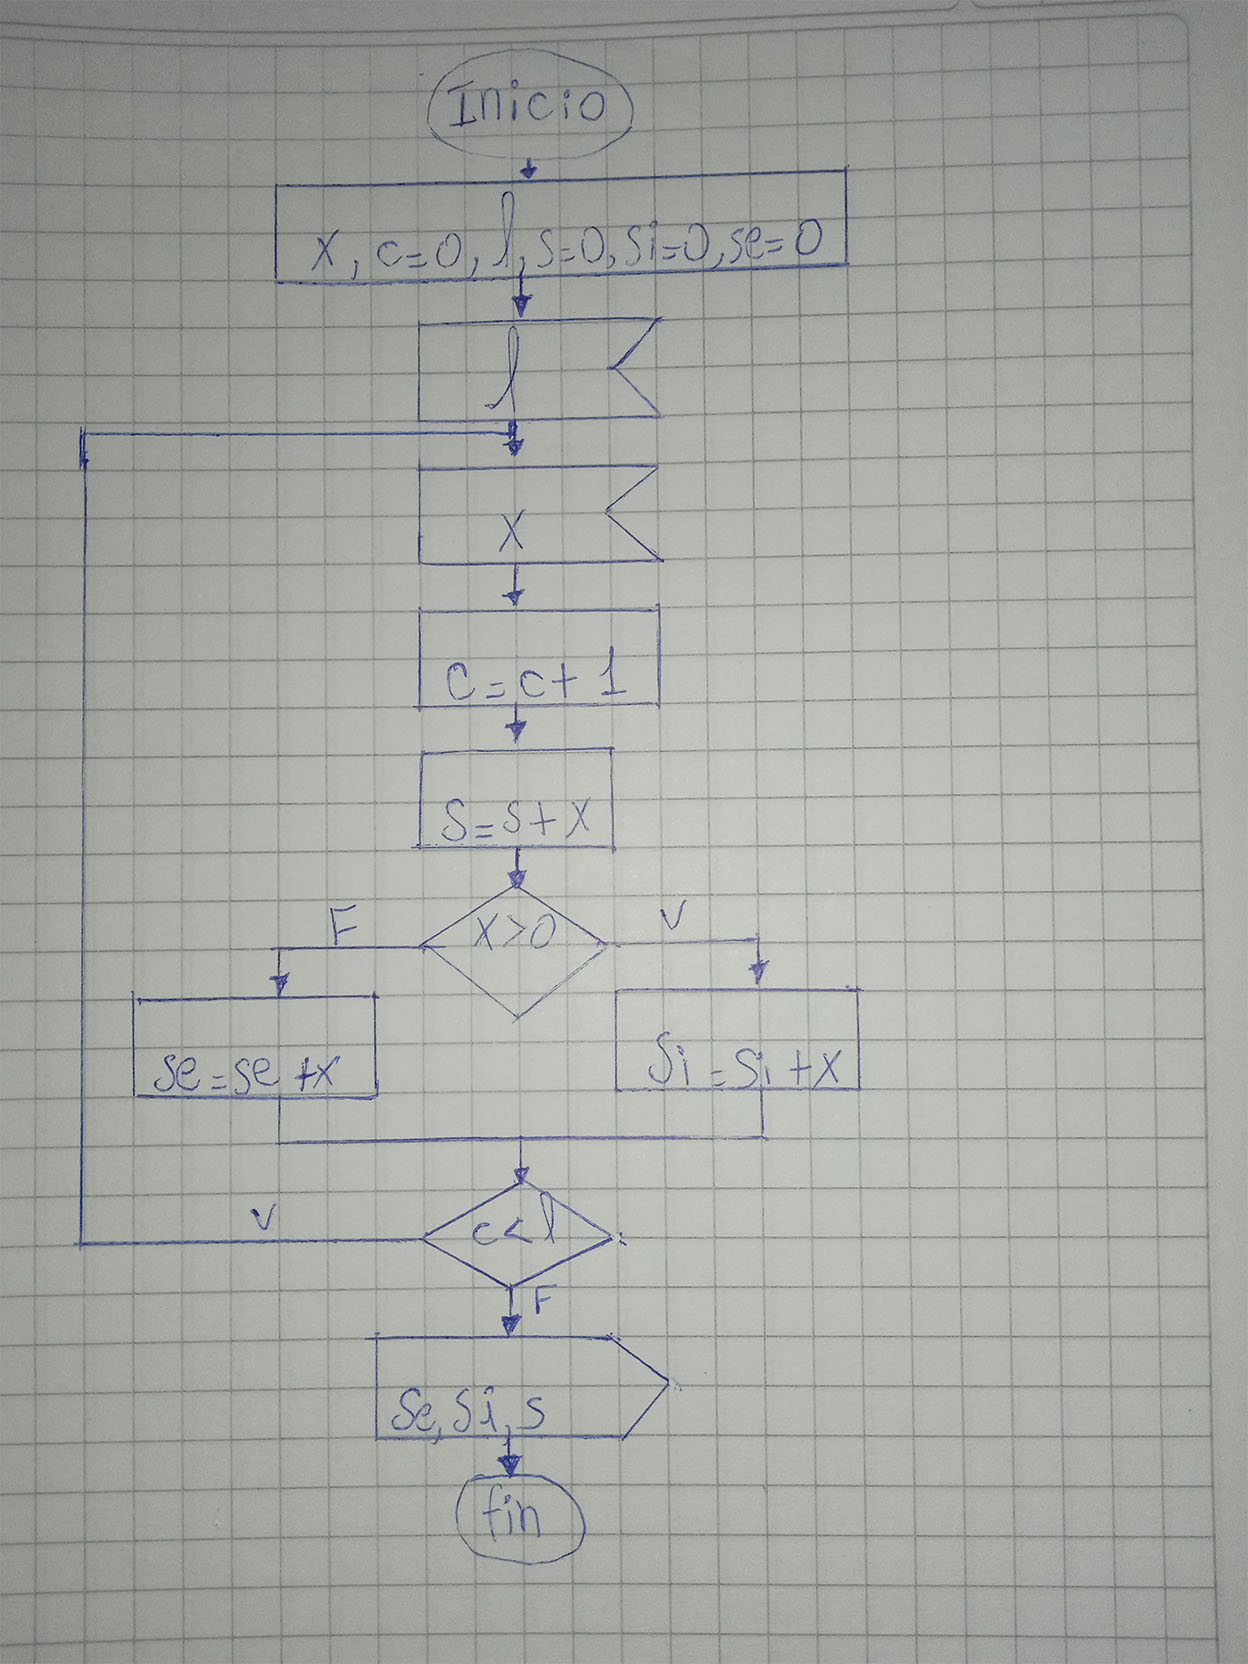 Inicio
X, c=0, l, s=0, si=0, se=0
l
X
C=c+1
S=s+X
X>0
F
V
se=se+x
Si=Si+X
c<l
V
F
Se, Si, s
fin